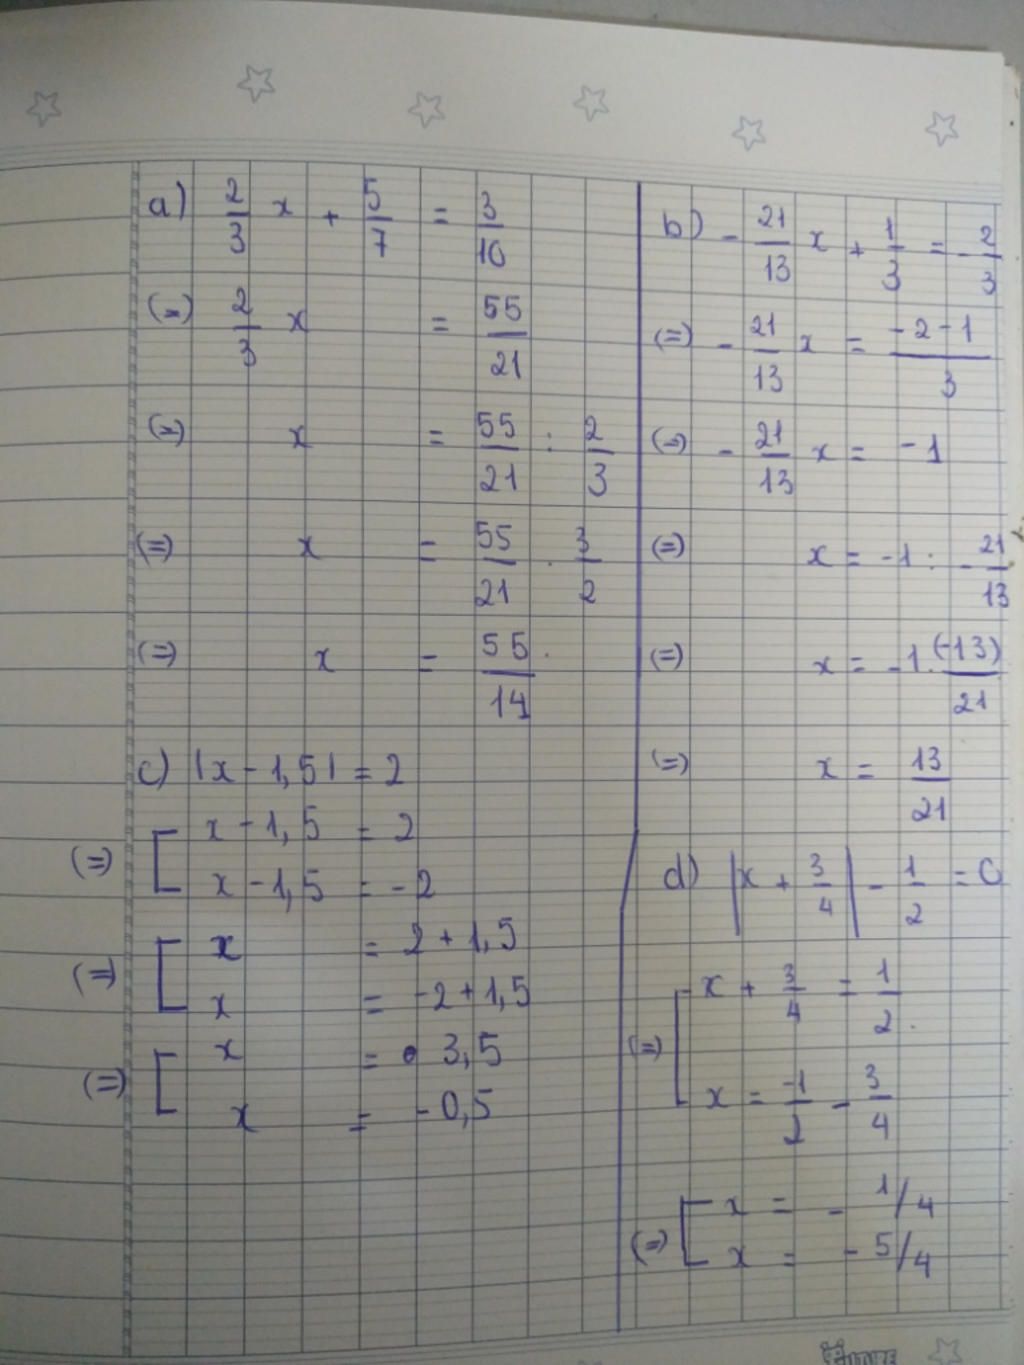 a) 2/3 x + 5/7 = 3/10
(=) 2/3 x = 55/21
(=) x = 55/21 : 2/3
(=) x = 55/21 . 3/2
(=) x = 55/14
c) |x - 1,5| = 2
(=) [ x - 1,5 = 2
x - 1,5 = -2
(=) [ x = 2 + 1,5
x = -2 + 1,5
(=) [ x = 3,5
x = -0,5
b) - 21/13 x + 1/3 = - 2/3
(=) - 21/13 x = (-2 - 1)/3
(=) - 21/13 x = -1
(=) x = -1 : - 21/13
(=) x = -1 . (-13)/21
(=) x = 13/21
d) |x + 3/4| - 1/2 = 0
(=) [ x + 3/4 = 1/2
x = -1/2 - 3/4
(=) [ x = - 1/4
x = - 5/4